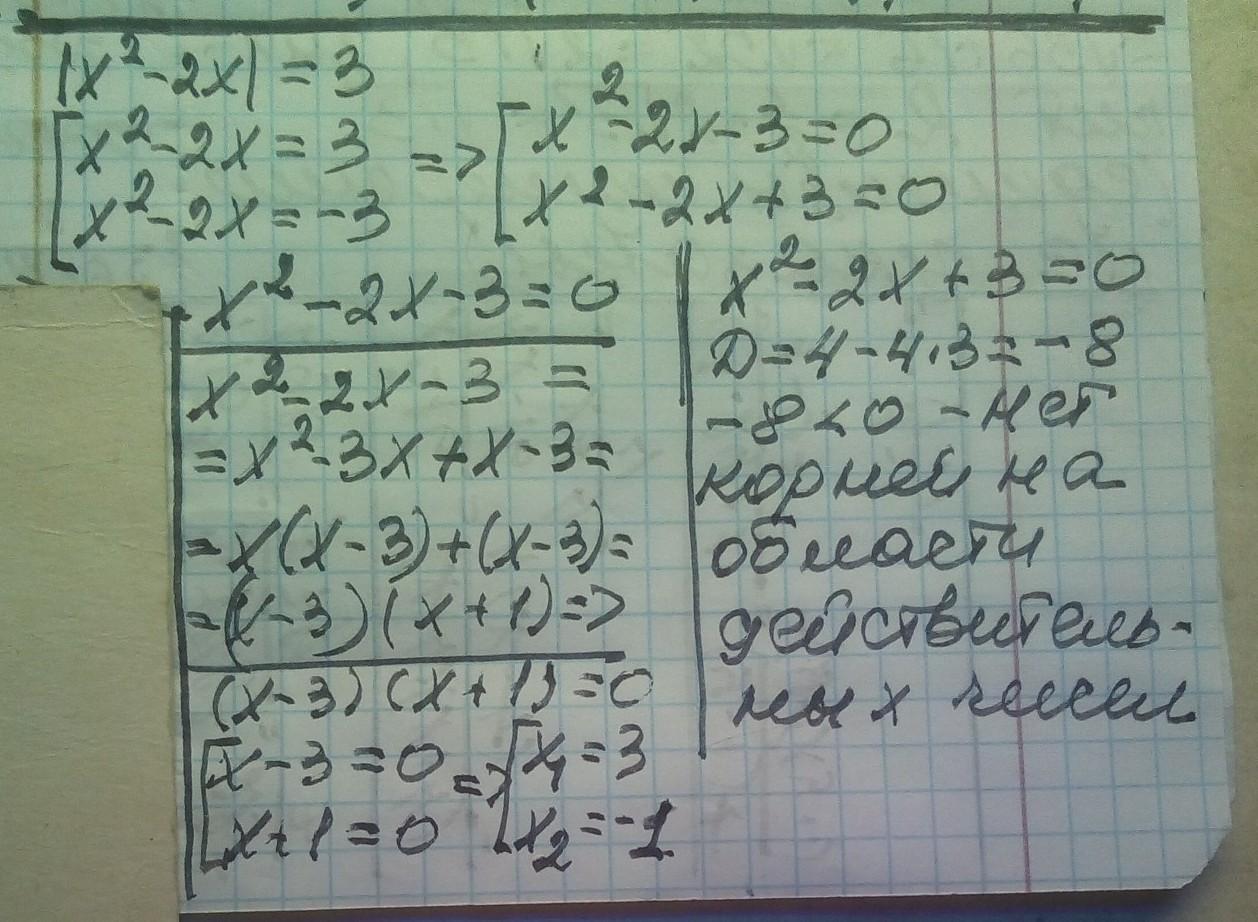 |x²-2x| = 3
[x²-2x = 3 => [x²-2x-3=0
[x²-2x=-3 [x²-2x+3=0
x²-2x-3=0
x²-2x-3 =
=x²-3x+x-3=
=x(x-3)+(x-3)=
=(x-3)(x+1)=>
(x-3)(x+1)=0
[x-3=0 => [x₁=3
[x+1=0 [x₂=-1
x²-2x+3=0
D=4-4·3=-8
-8<0 -нет
корней на
области
действитель-
ных чисел